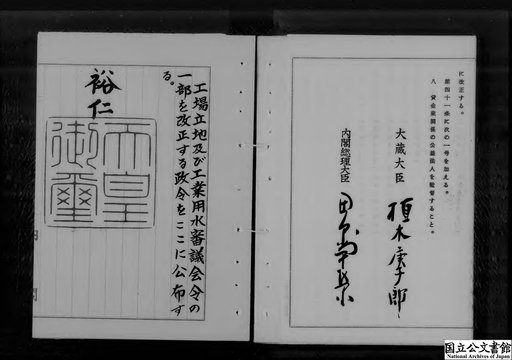 に改正する。
第四十一条に次の一号を加える。
八 貸金業関係の公益法人を監督すること。
大蔵大臣 植木庚子郎
内閣総理大臣 田中角榮
工場立地及び工業用水審議会令の
一部を改正する政令をここに公布す
る。
裕仁
天皇
御璽
国立公文書館
National Archives of Japan